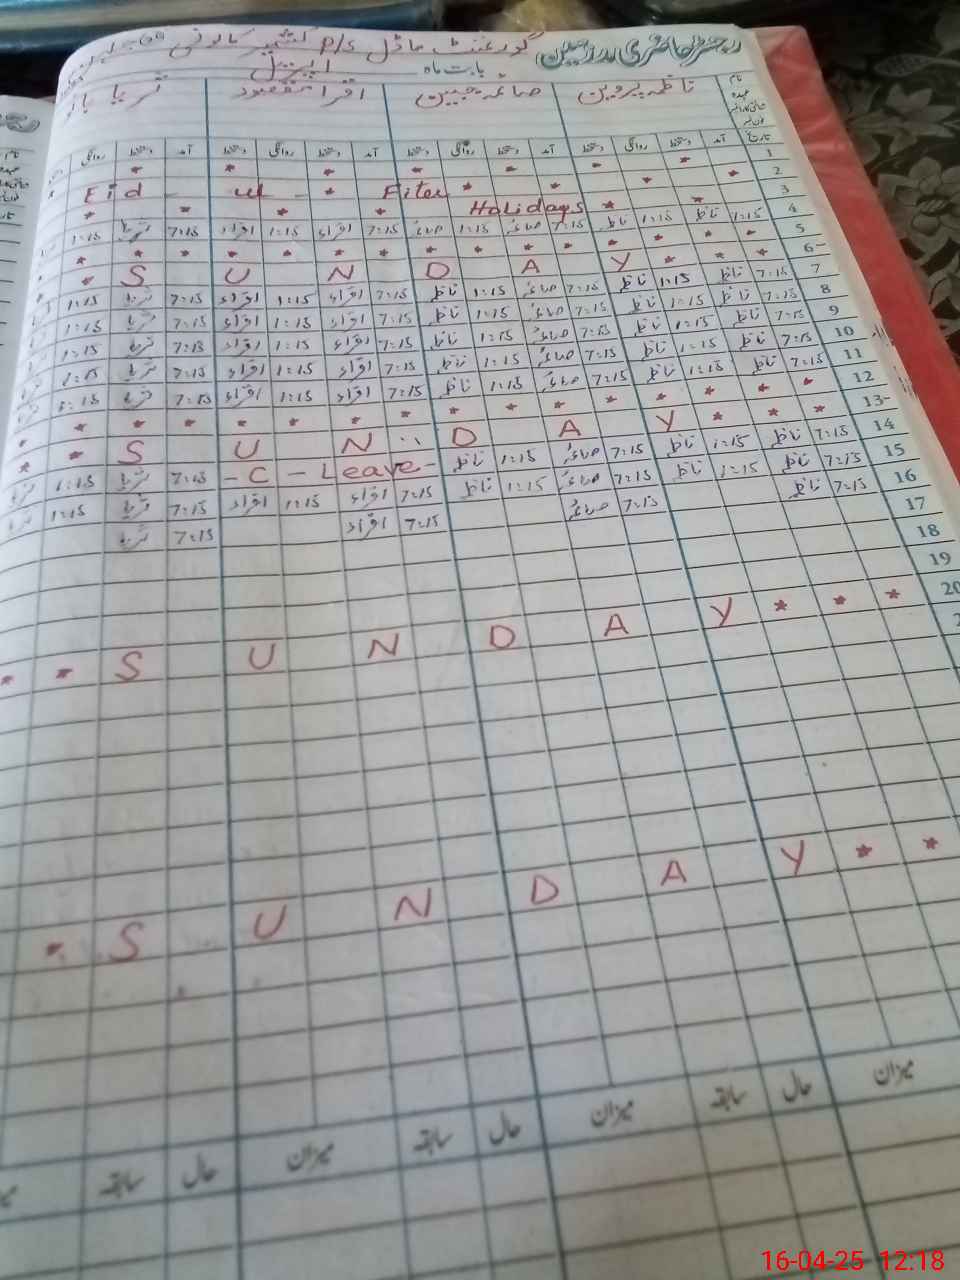 رجسٹر حاضری مدرسین گورنمنٹ ماڈل P/S کشمیر کالونی
بابت ماہ اپریل
نام ناظمہ پروین صائمہ جبین اقراء مقصود ثریا بانو
عہدہ
تاریخ آمد دستخط روانگی دستخط آمد دستخط روانگی دستخط آمد دستخط روانگی دستخط آمد دستخط روانگی
1
2 Eid - ul - Fiter
3 Holidays
4 7:15 ناظمہ 1:15 ناظمہ 7:15 صائمہ 1:15 صائمہ 7:15 اقراء 1:15 اقراء 7:15 ثریا 1:15
5
6- S U N D A Y
7 7:15 ناظمہ 1:15 ناظمہ 7:15 صائمہ 1:15 7:15 اقراء 1:15 اقراء 7:15 ثریا 1:15
8 7:15 ناظمہ 1:15 ناظمہ 7:15 صائمہ 1:15 7:15 اقراء 1:15 اقراء 7:15 ثریا 1:15
9 7:15 ناظمہ 1:15 ناظمہ 7:15 صائمہ 1:15 7:15 اقراء 1:15 اقراء 7:15 ثریا 1:15
10 7:15 ناظمہ 1:15 ناظمہ 7:15 صائمہ 1:15 7:15 اقراء 1:15 اقراء 7:15 ثریا 1:15
11 7:15 ناظمہ 1:15 ناظمہ 7:15 صائمہ 1:15 7:15 اقراء 1:15 اقراء 7:15 ثریا 1:15
12
13- S U N D A Y
14 7:15 ناظمہ 1:15 ناظمہ 7:15 صائمہ 1:15 - C - Leave - 7:15 ثریا 1:15
15 7:15 ناظمہ 1:15 ناظمہ 7:15 صائمہ 1:15 7:15 اقراء 1:15 اقراء 7:15 ثریا 1:15
16 7:15 ناظمہ 7:15 صائمہ 7:15 اقراء 7:15 ثریا
17
18
19
20 S U N D A Y
S U N D A Y
میزان حال سابقہ میزان حال سابقہ میزان حال سابقہ
16-04-25 12:18